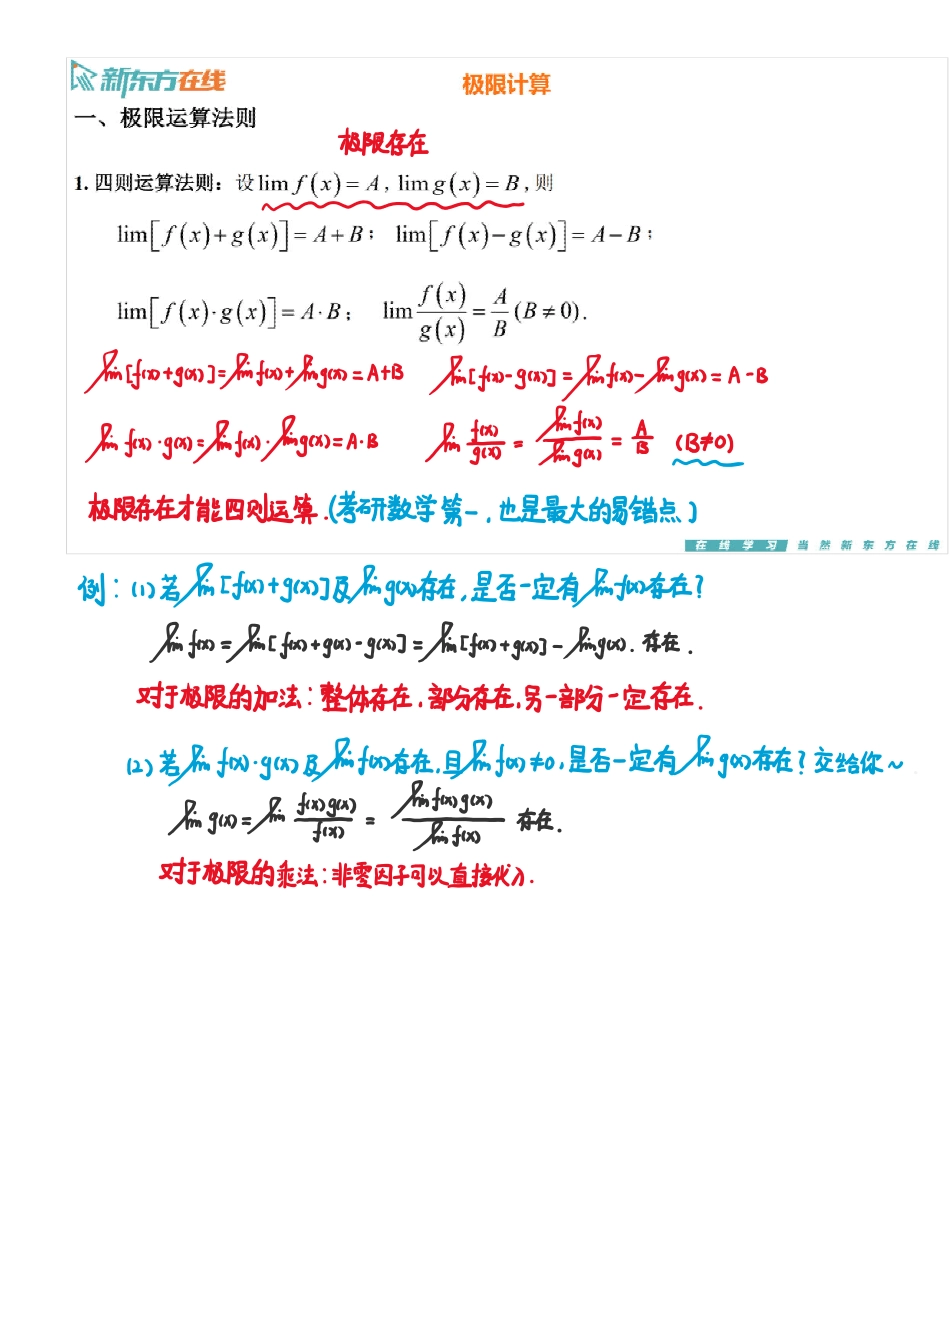 新东方在线
极限计算
一、极限运算法则
极限存在
1. 四则运算法则：设 lim f(x) = A, lim g(x) = B, 则
lim[f(x)+g(x)] = A+B； lim[f(x)−g(x)] = A−B；
lim[f(x)·g(x)] = A·B； lim f(x)/g(x) = A/B (B≠0).
lim[f(x)+g(x)]=lim f(x)+lim g(x)=A+B lim[f(x)-g(x)]=lim f(x)-lim g(x)=A-B
lim f(x)·g(x)=lim f(x)·lim g(x)=A·B lim f(x)/g(x) = lim f(x)/lim g(x) = A/B (B≠0)
极限存在才能四则运算.(考研数学第一,也是最大的易错点)
在线学习 当然新东方在线
例：(1)若lim[f(x)+g(x)]及lim g(x)存在,是否一定有lim f(x)存在?
lim f(x)=lim[f(x)+g(x)-g(x)]=lim[f(x)+g(x)]-lim g(x). 存在.
对于极限的加法：整体存在,部分存在,另一部分一定存在.
(2)若lim f(x)·g(x)及lim f(x)存在,且lim f(x)≠0,是否一定有lim g(x)存在?交给你~
lim g(x)=lim f(x)g(x)/f(x) = lim f(x)g(x)/lim f(x) 存在.
对于极限的乘法：非零因子可以直接代入.